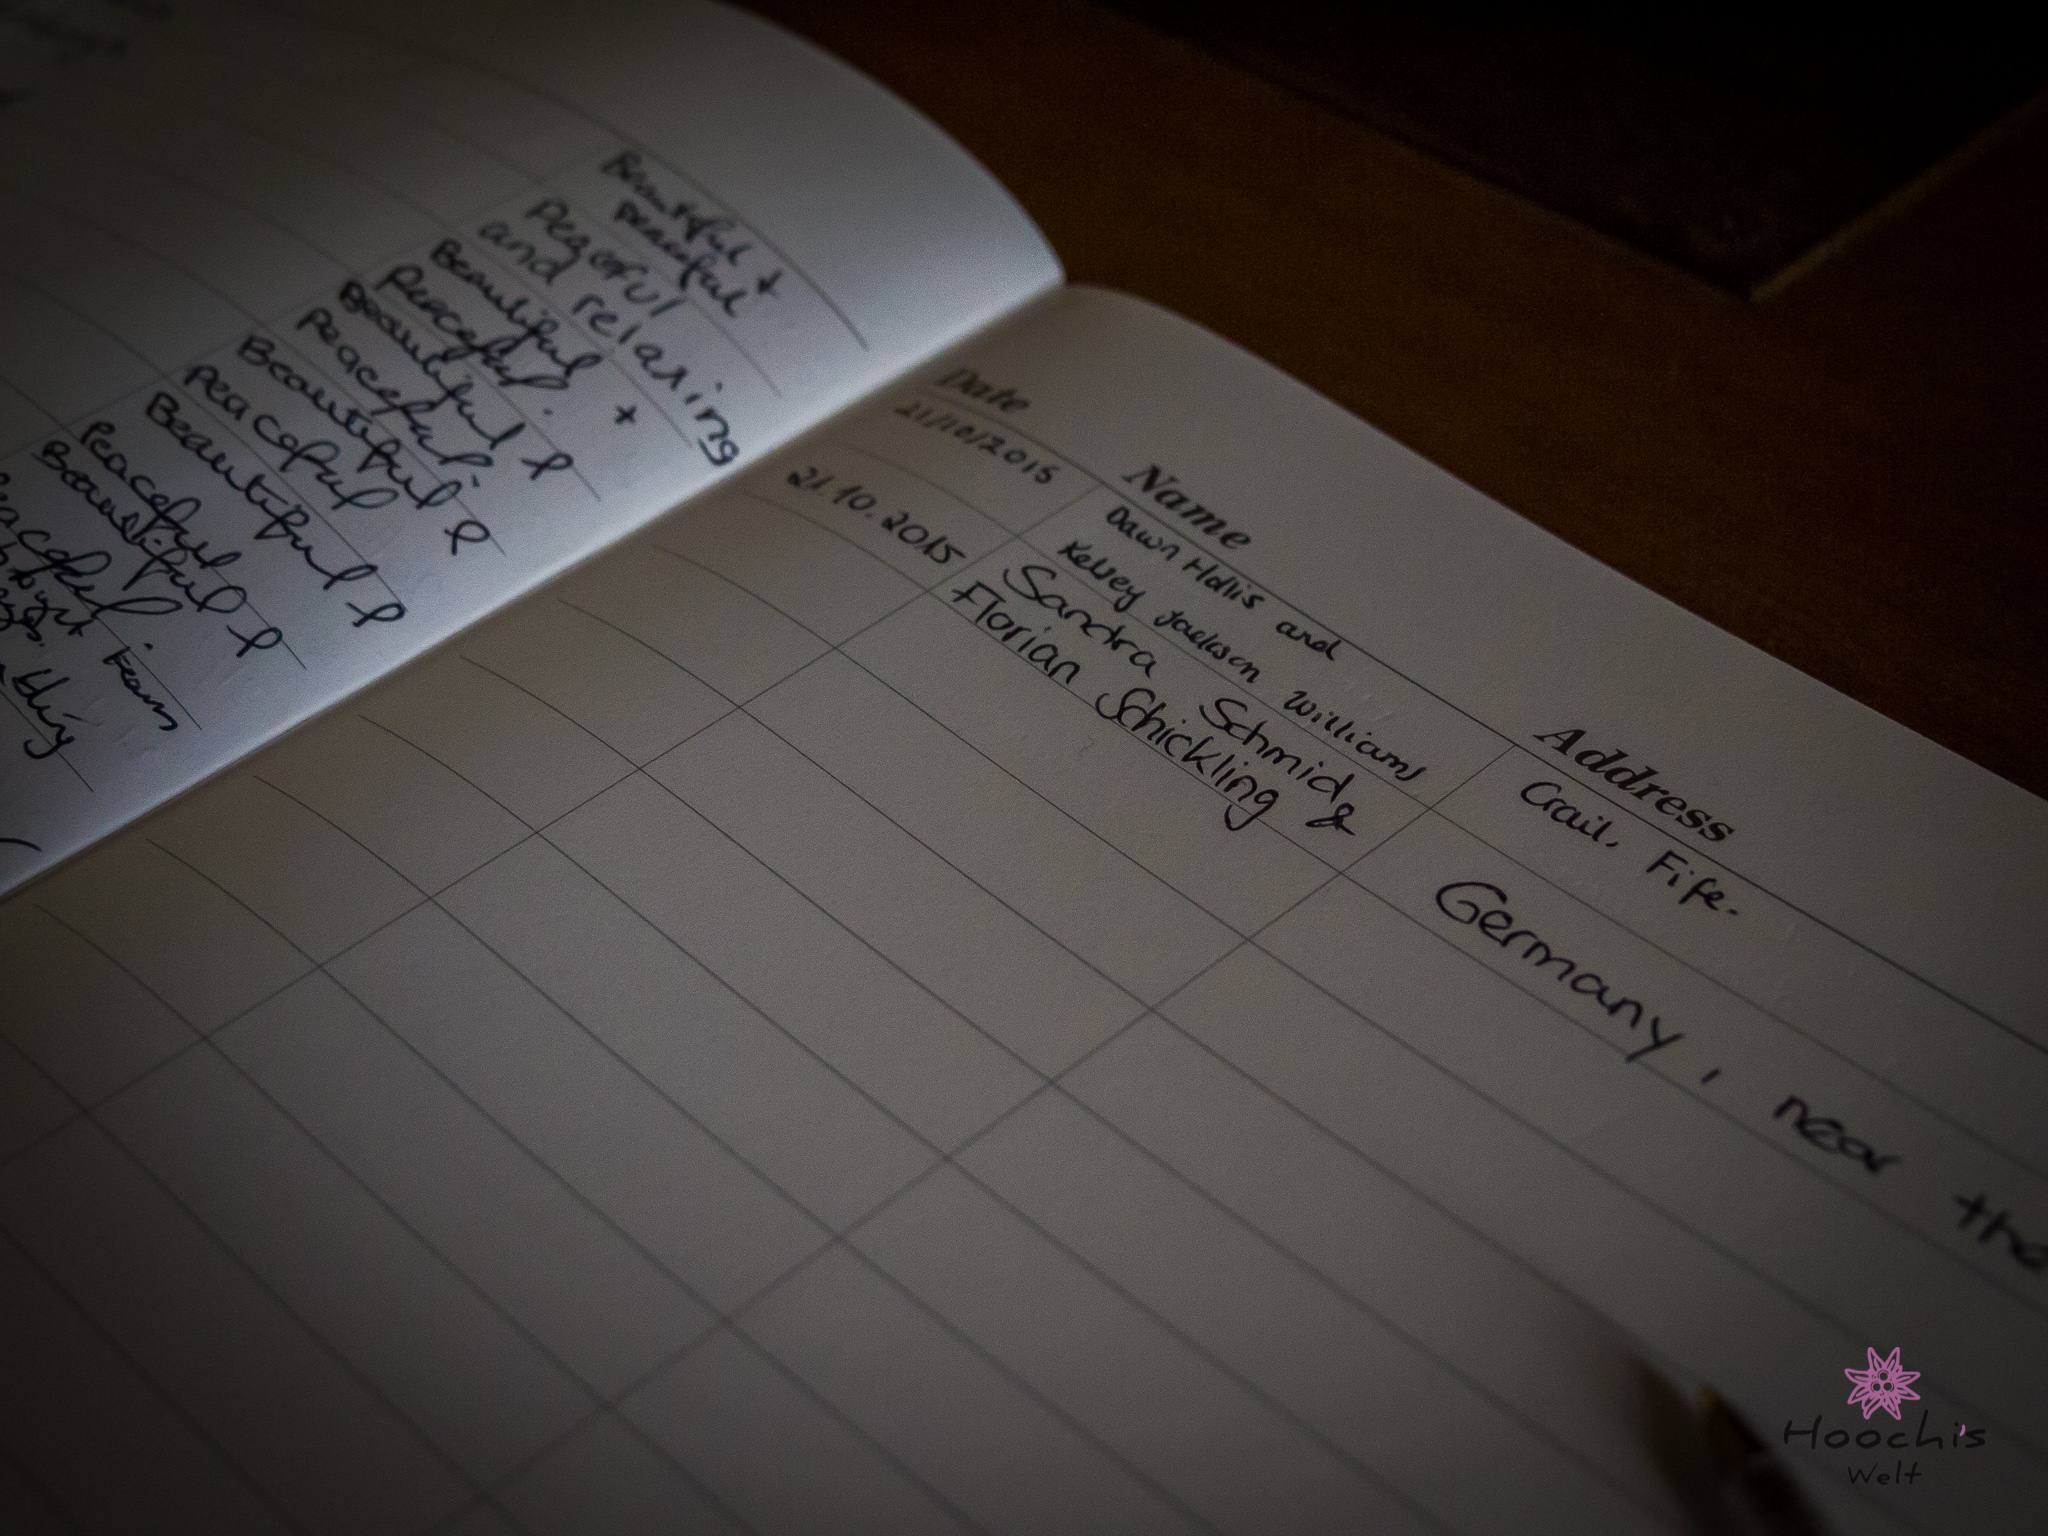 Beautiful +
peaceful
Peaceful
and relaxing
Beautiful +
Peaceful.
Beautiful &
Peaceful.
Beautiful &
Peaceful
Beautiful &
Peaceful
Beautiful &
thing
Date Name Address
21/10/2015 Dawn Hollis and Crail, Fife.
Kelsey Jackson Williams
21.10.2015 Sandra Schmid & Germany, near the
Florian Schickling
Hoochi's
Welt